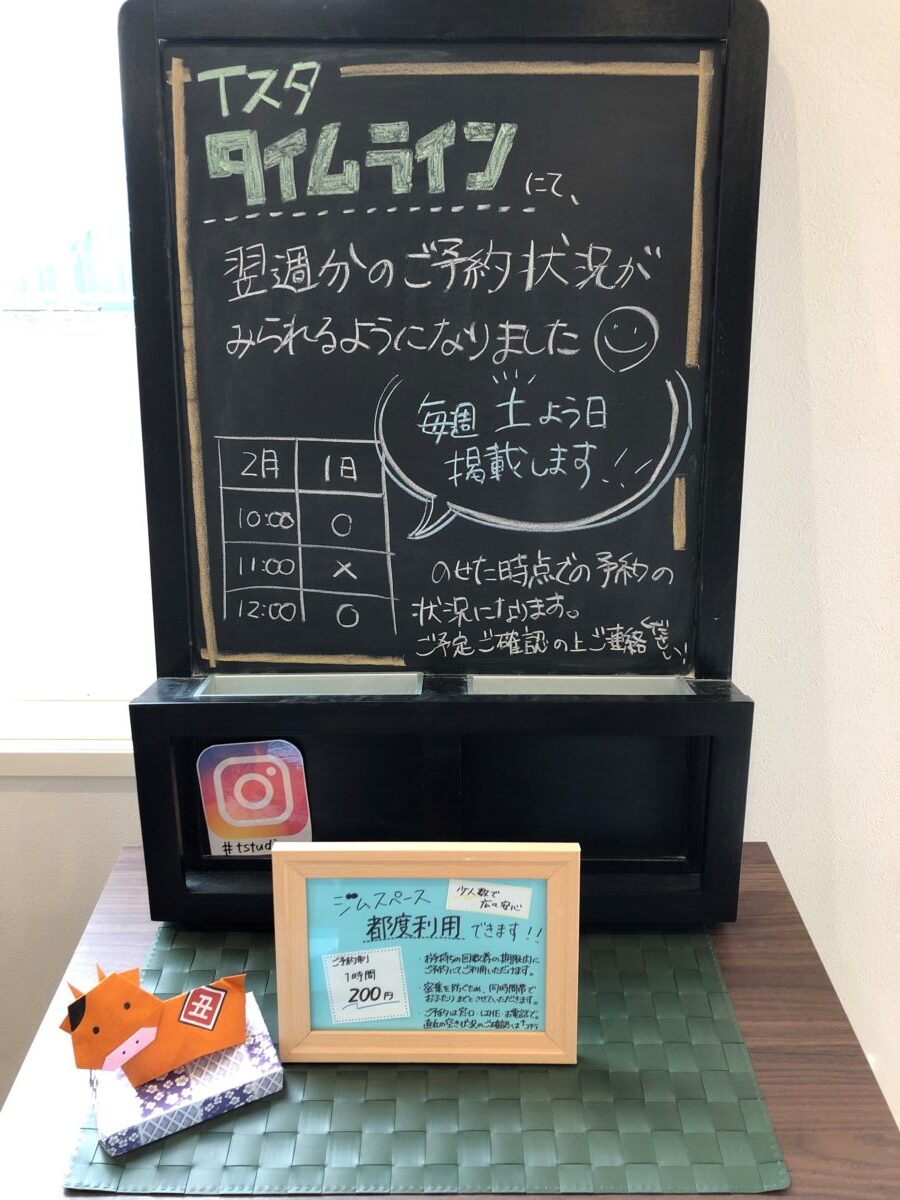 Tスタ
タイムライン にて、
翌週分のご予約状況が
みられるようになりました
毎週 土よう日
掲載します!!
2月 1日
10:00 ○
11:00 ×
12:00 ○
のせた時点での予約の
状況になります。
ご予定ご確認の上ご連絡ください!
#tstudi
ジムスペース
少人数で
広々安心
都度利用 できます!!
ご予約制
1時間
200円
・お手持ちの回数券の期限内に
ご予約にてご利用いただけます。
密集を防ぐため、同時間帯で
おふたりまでとさせていただきます。
ご予約は窓口・LINE・お電話で。
直近の空き状況のご確認は
丑